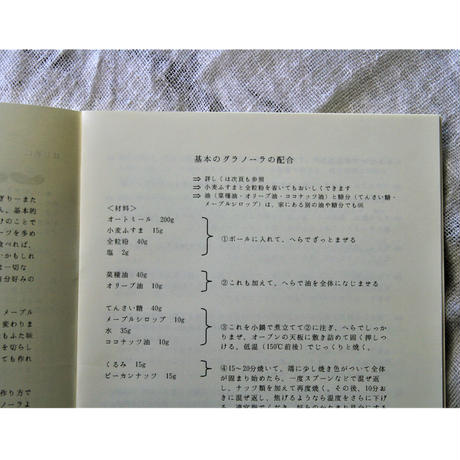 はじめに
ぎり－また
ん。基本的
けのことで
ーツを多め
食べれば、
・かもしれ
ま一切な
自分好みの
メープル
変わりま
もふた味
を切らし
ても作れ
作り方で
ノーラよ
基本のグラノーラの配合
⇒ 詳しくは次頁も参照
⇒ 小麦ふすまと全粒粉を省いてもおいしくできます
⇒ 油（菜種油・オリーブ油・ココナッツ油）と糖分（てんさい糖・
メープルシロップ）は、家にある別の油や糖分でもOK
＜材料＞
オートミール 200g
小麦ふすま 15g
全粒粉 40g
塩 2g
①ボールに入れて、へらでざっとまぜる
菜種油 40g
オリーブ油 10g
②これも加えて、へらで油を全体になじませる
てんさい糖 40g
メープルシロップ 10g
水 35g
ココナッツ油 10g
③これを小鍋で煮立てて②に注ぎ、へらでしっか
りまぜ、オーブンの天板に敷き詰めて固く押しつ
ける。低温（150℃前後）でじっくりと焼く。
くるみ 15g
ピーカンナッツ 15g
④15～20分焼いて、端に少し焼き色がついて全体
が固まり始めたら、一度スプーンなどで混ぜ返
し、ナッツ類を加えて再度焼く。その後、10分お
きに混ぜ返し、焦げるようなら温度をさらに下げ